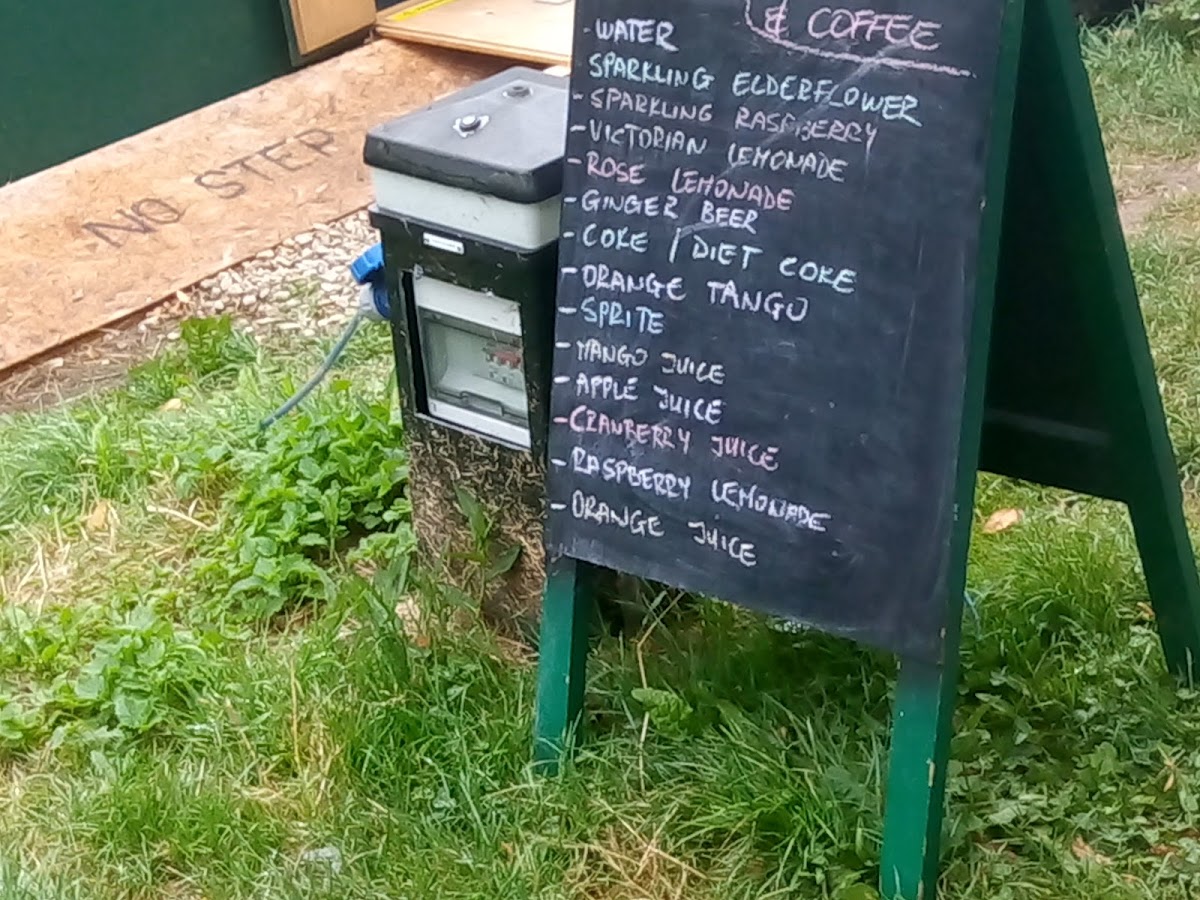 & COFFEE
- WATER
SPARKLING ELDERFLOWER
- SPARKLING RASPBERRY
- VICTORIAN LEMONADE
- ROSE LEMONADE
- GINGER BEER
- COKE / DIET COKE
- ORANGE TANGO
- SPRITE
- MANGO JUICE
- APPLE JUICE
- CRANBERRY JUICE
- RASPBERRY LEMONADE
- ORANGE JUICE
NO STEP